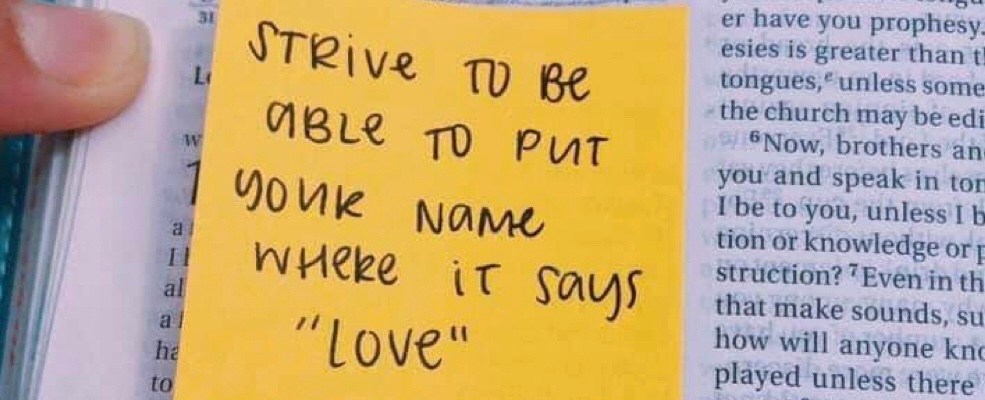 31
STRIVE TO BE
ABLE TO PUT
YOUR NAME
WHERE IT SAYS
"LOVE"
er have you prophesy.
esies is greater than
tongues,ᵉ unless some
the church may be edi
⁶Now, brothers an
you and speak in ton
I be to you, unless I b
tion or knowledge or p
struction? ⁷Even in th
that make sounds, su
how will anyone kno
played unless there